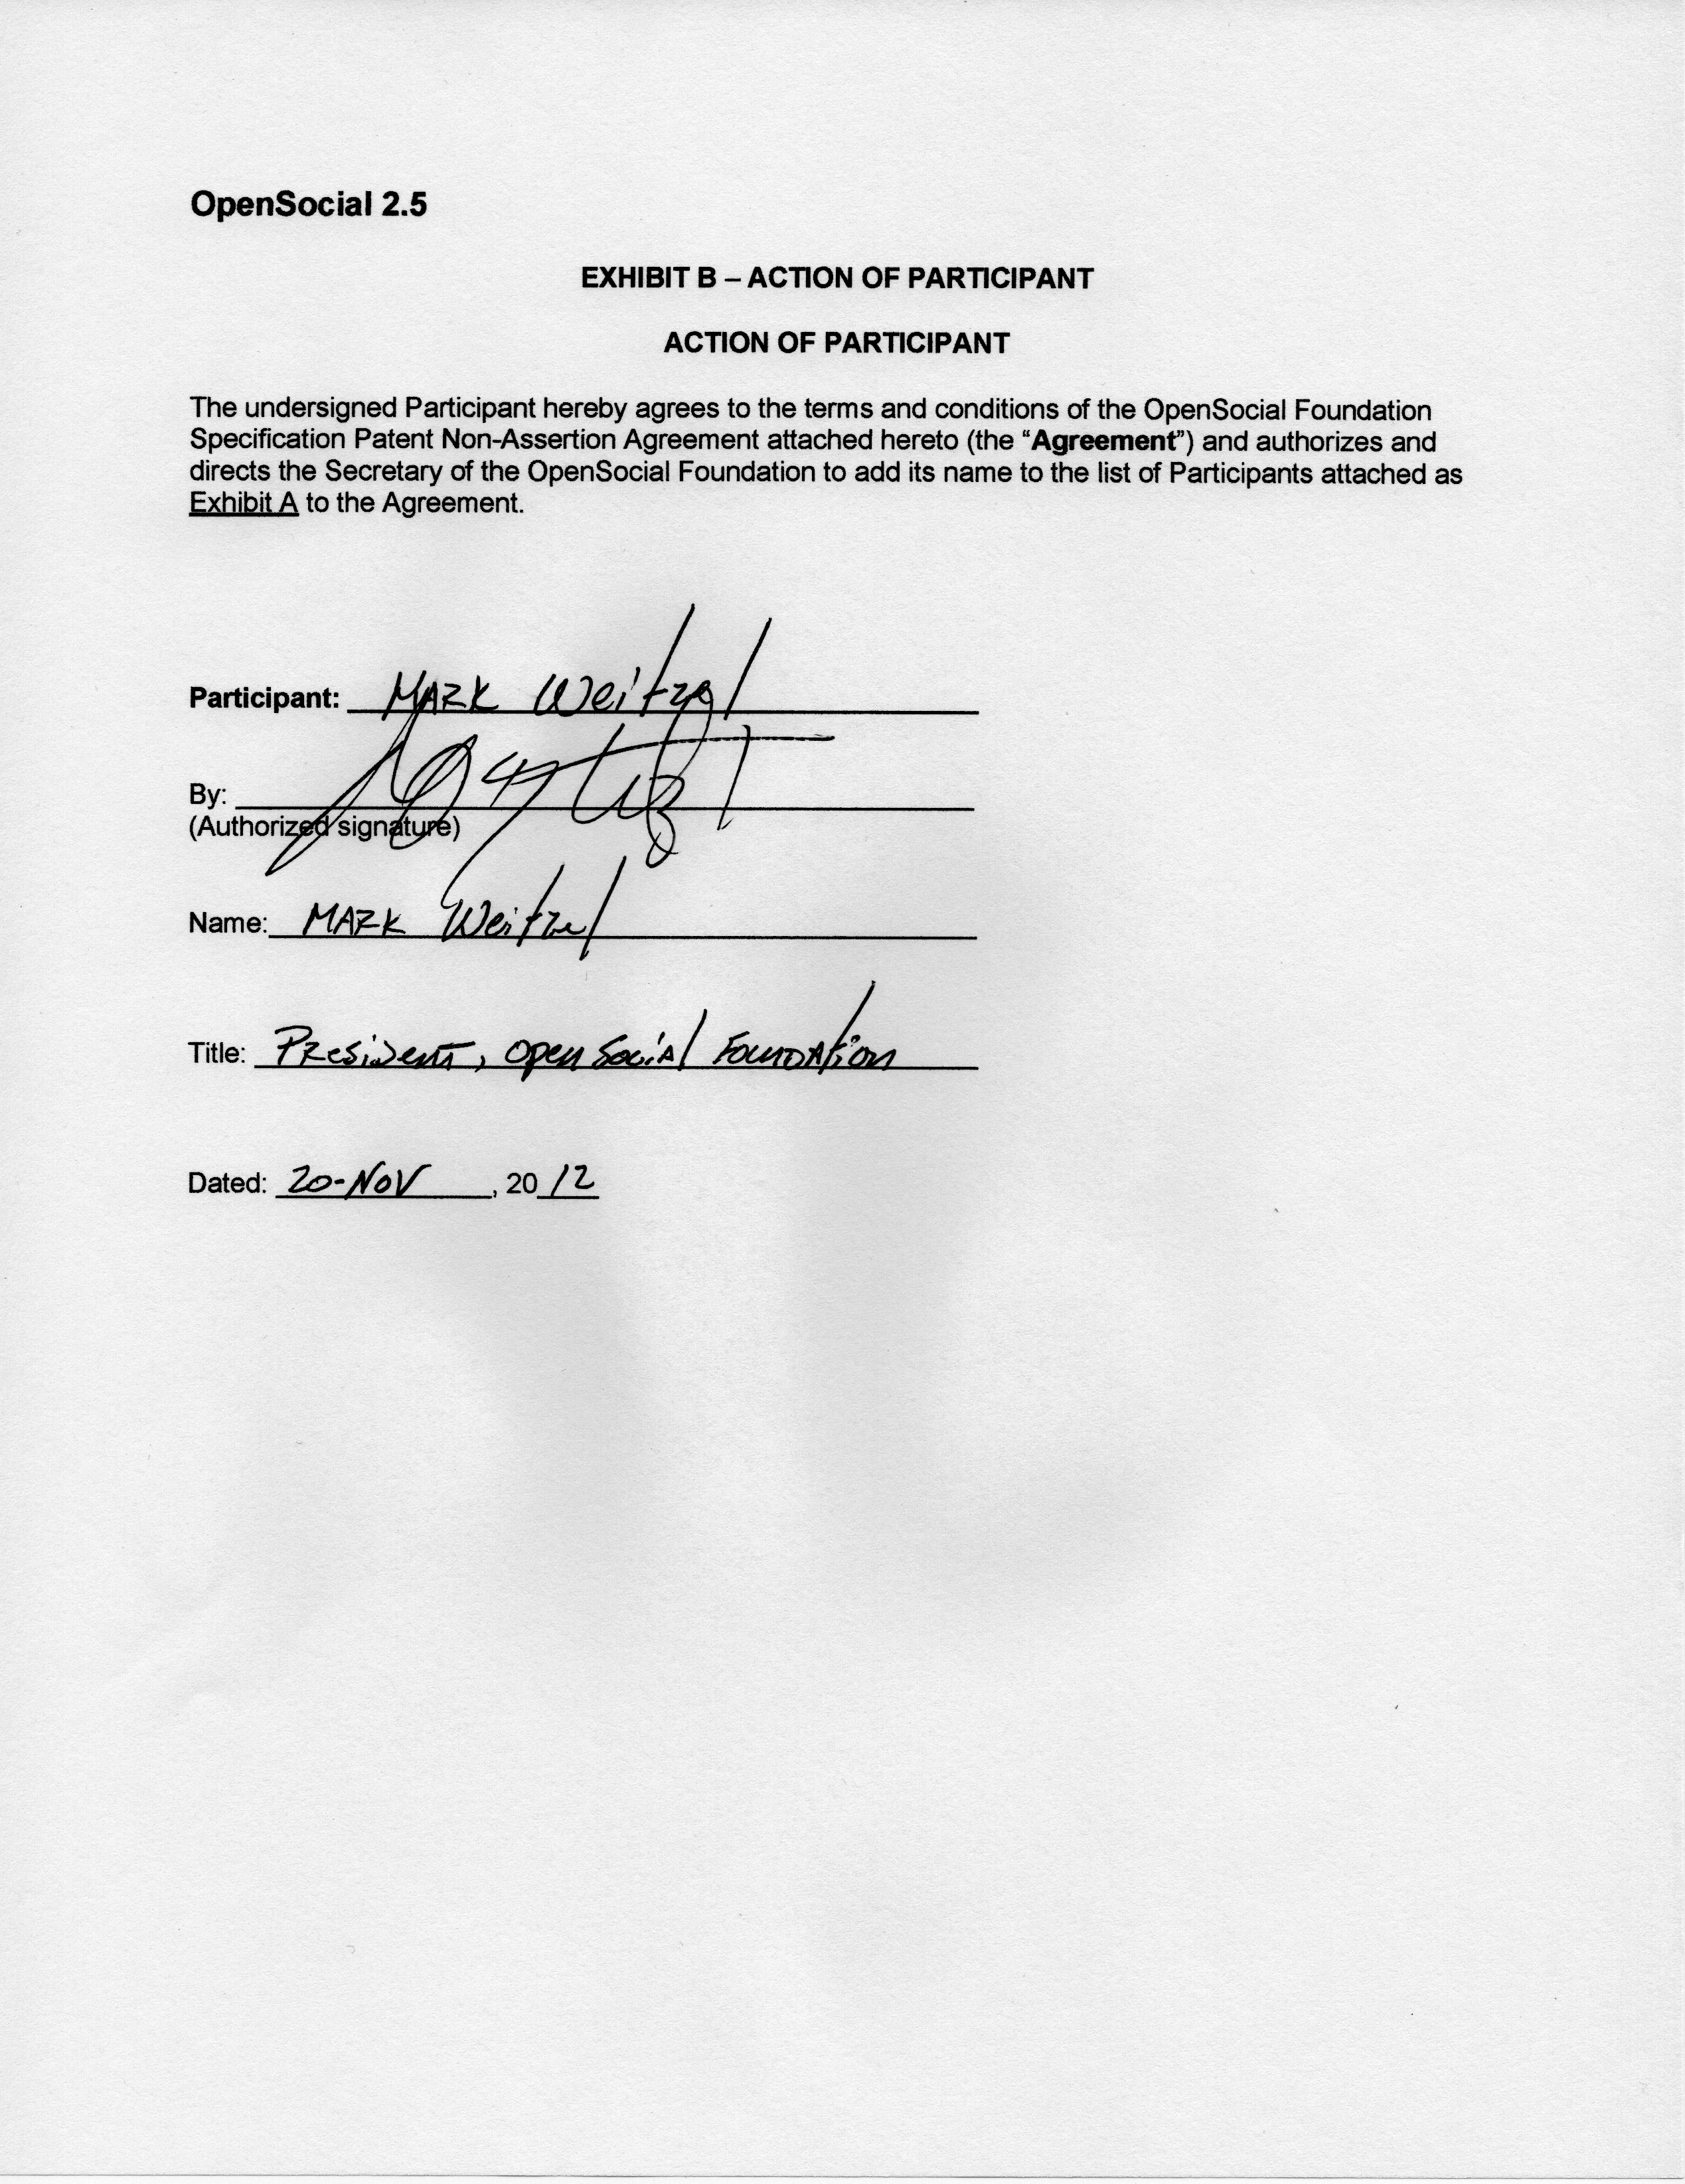 OpenSocial 2.5
EXHIBIT B – ACTION OF PARTICIPANT
ACTION OF PARTICIPANT
The undersigned Participant hereby agrees to the terms and conditions of the OpenSocial Foundation
Specification Patent Non-Assertion Agreement attached hereto (the “Agreement”) and authorizes and
directs the Secretary of the OpenSocial Foundation to add its name to the list of Participants attached as
Exhibit A to the Agreement.
Participant: MARK Weitzel
By:
(Authorized signature)
Name: MARK Weitzel
Title: President, OpenSocial Foundation
Dated: 20-NOV, 2012